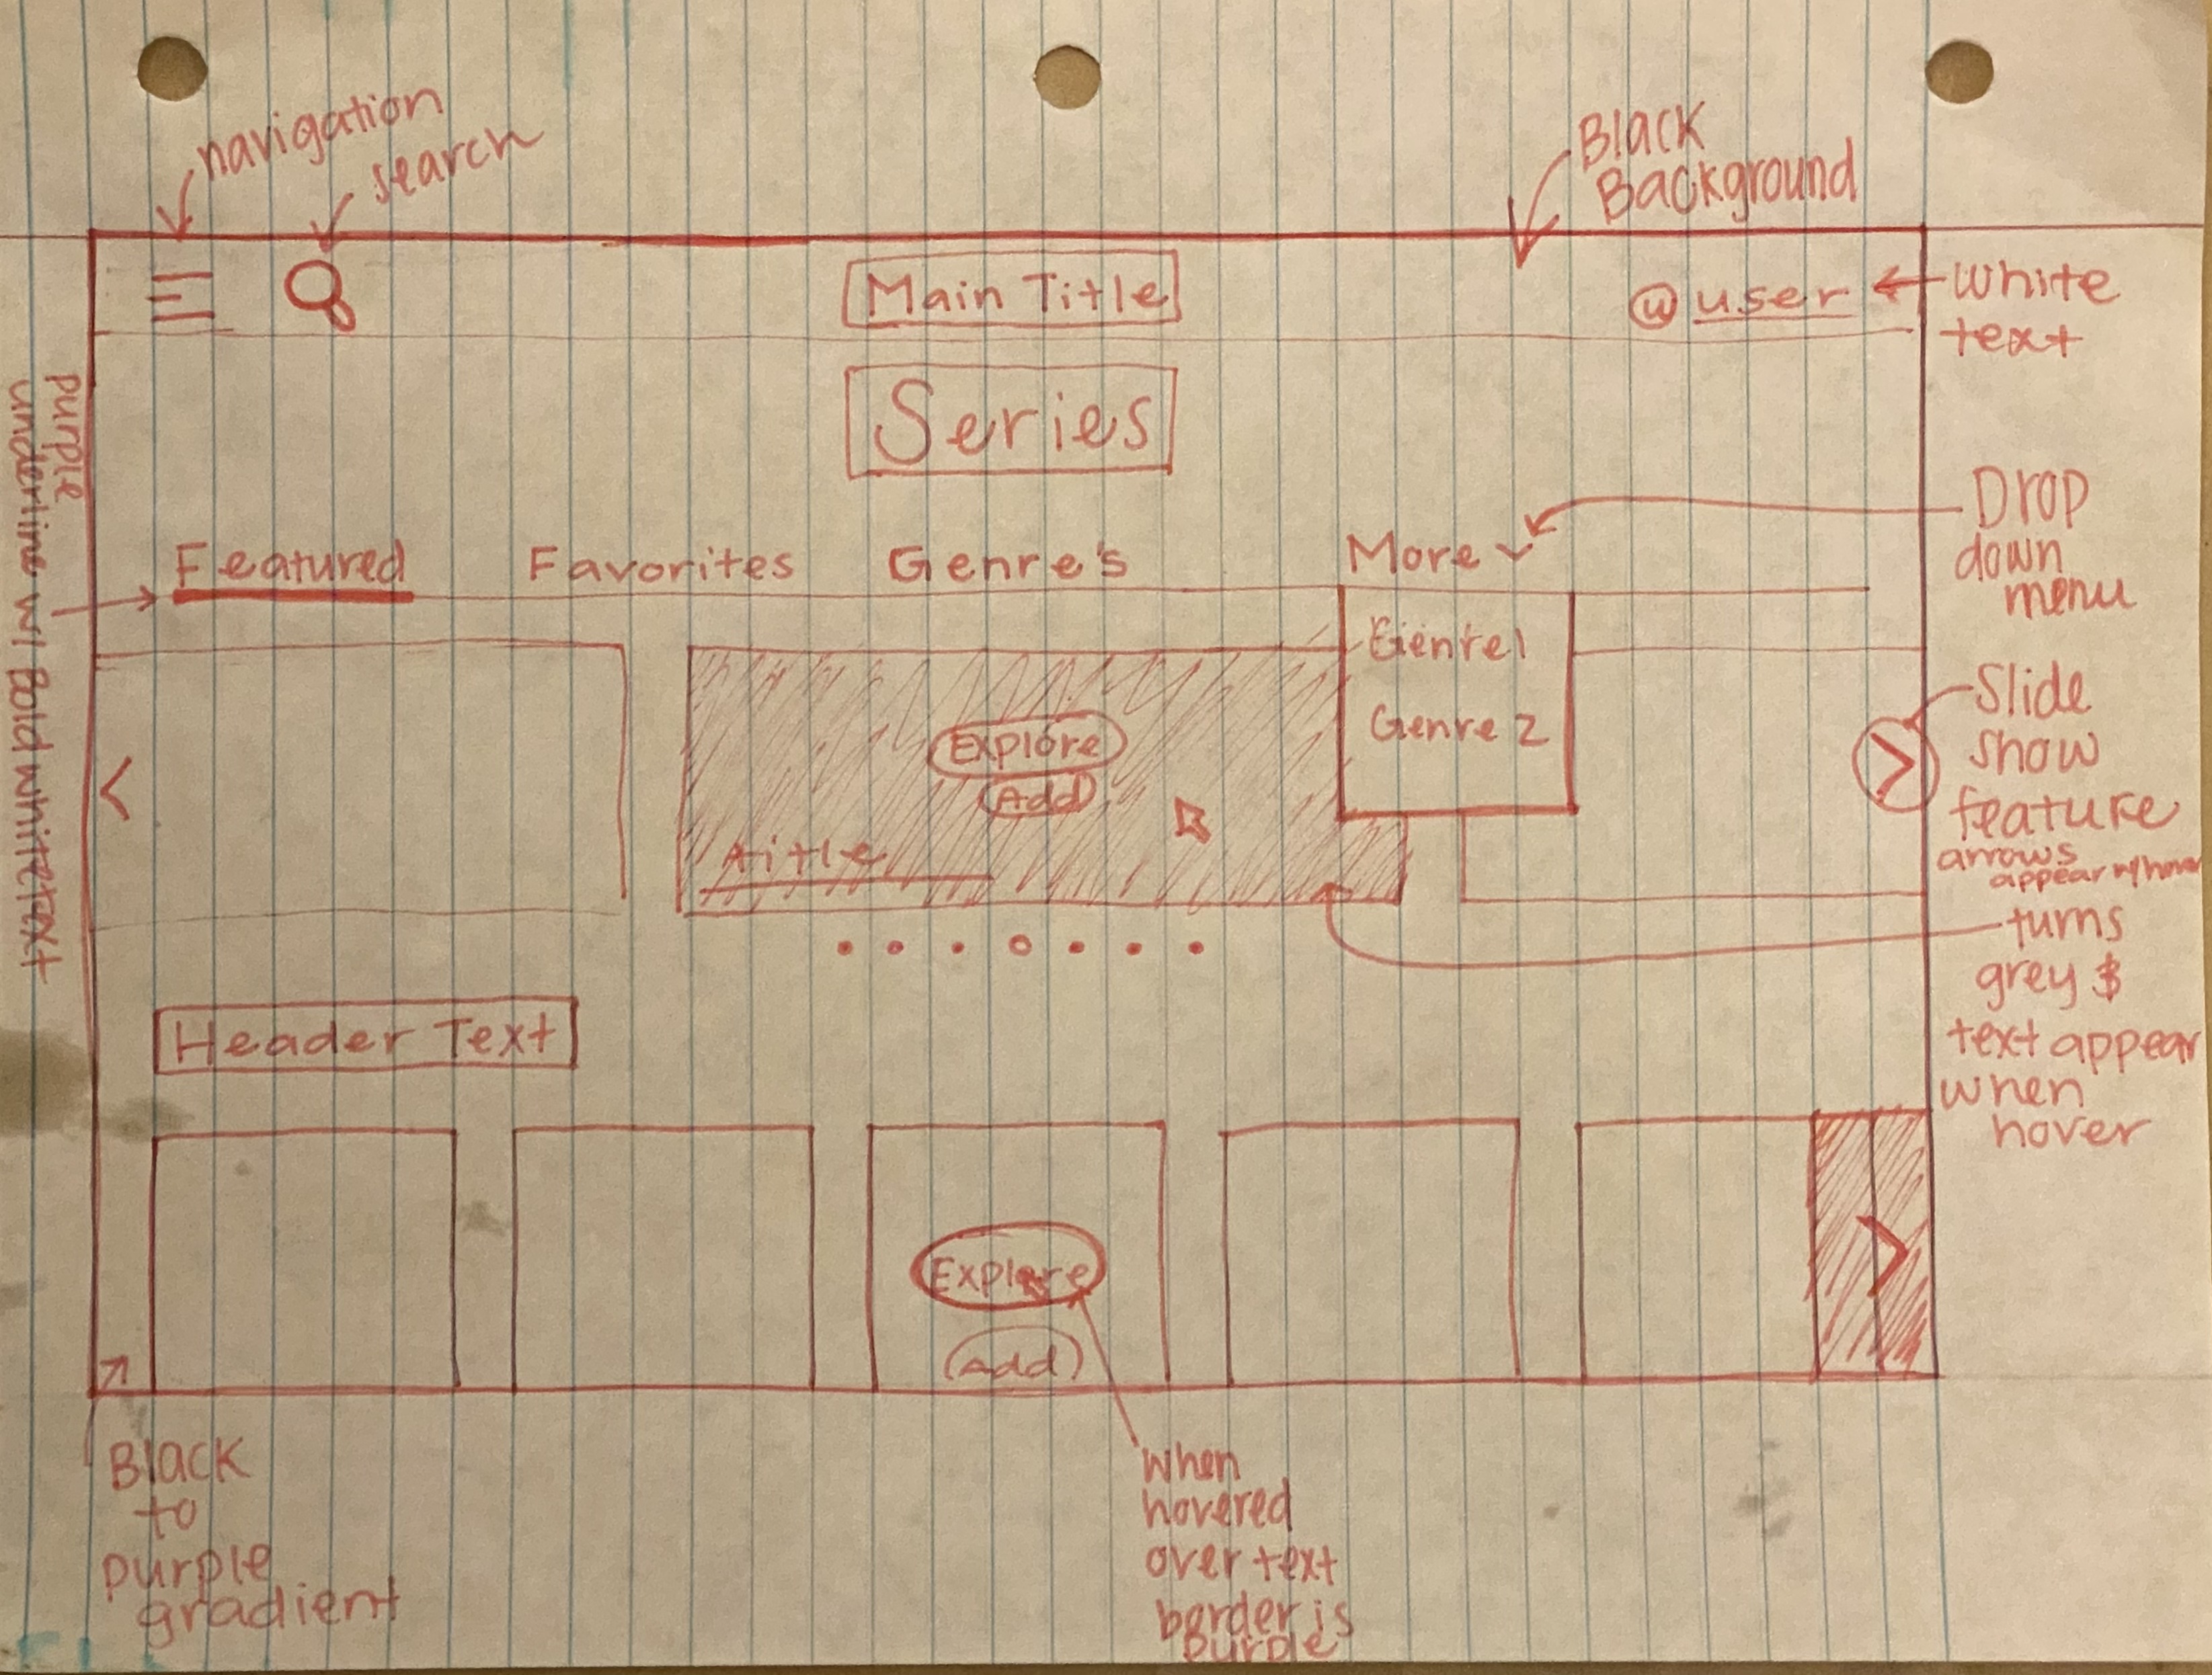 navigation
search
Black
Background
Main Title
@user
white
text
Series
purple
underline w/ Bold white text
Drop
down
menu
Featured
Favorites
Genre's
More
Genre1
Genre 2
Slide
show
feature
arrows
appear w/ hover
Explore
Add
title
turns
grey &
text appear
when
hover
Header Text
Explore
Add
Black
to
purple
gradient
when
hovered
over text
border is
purple